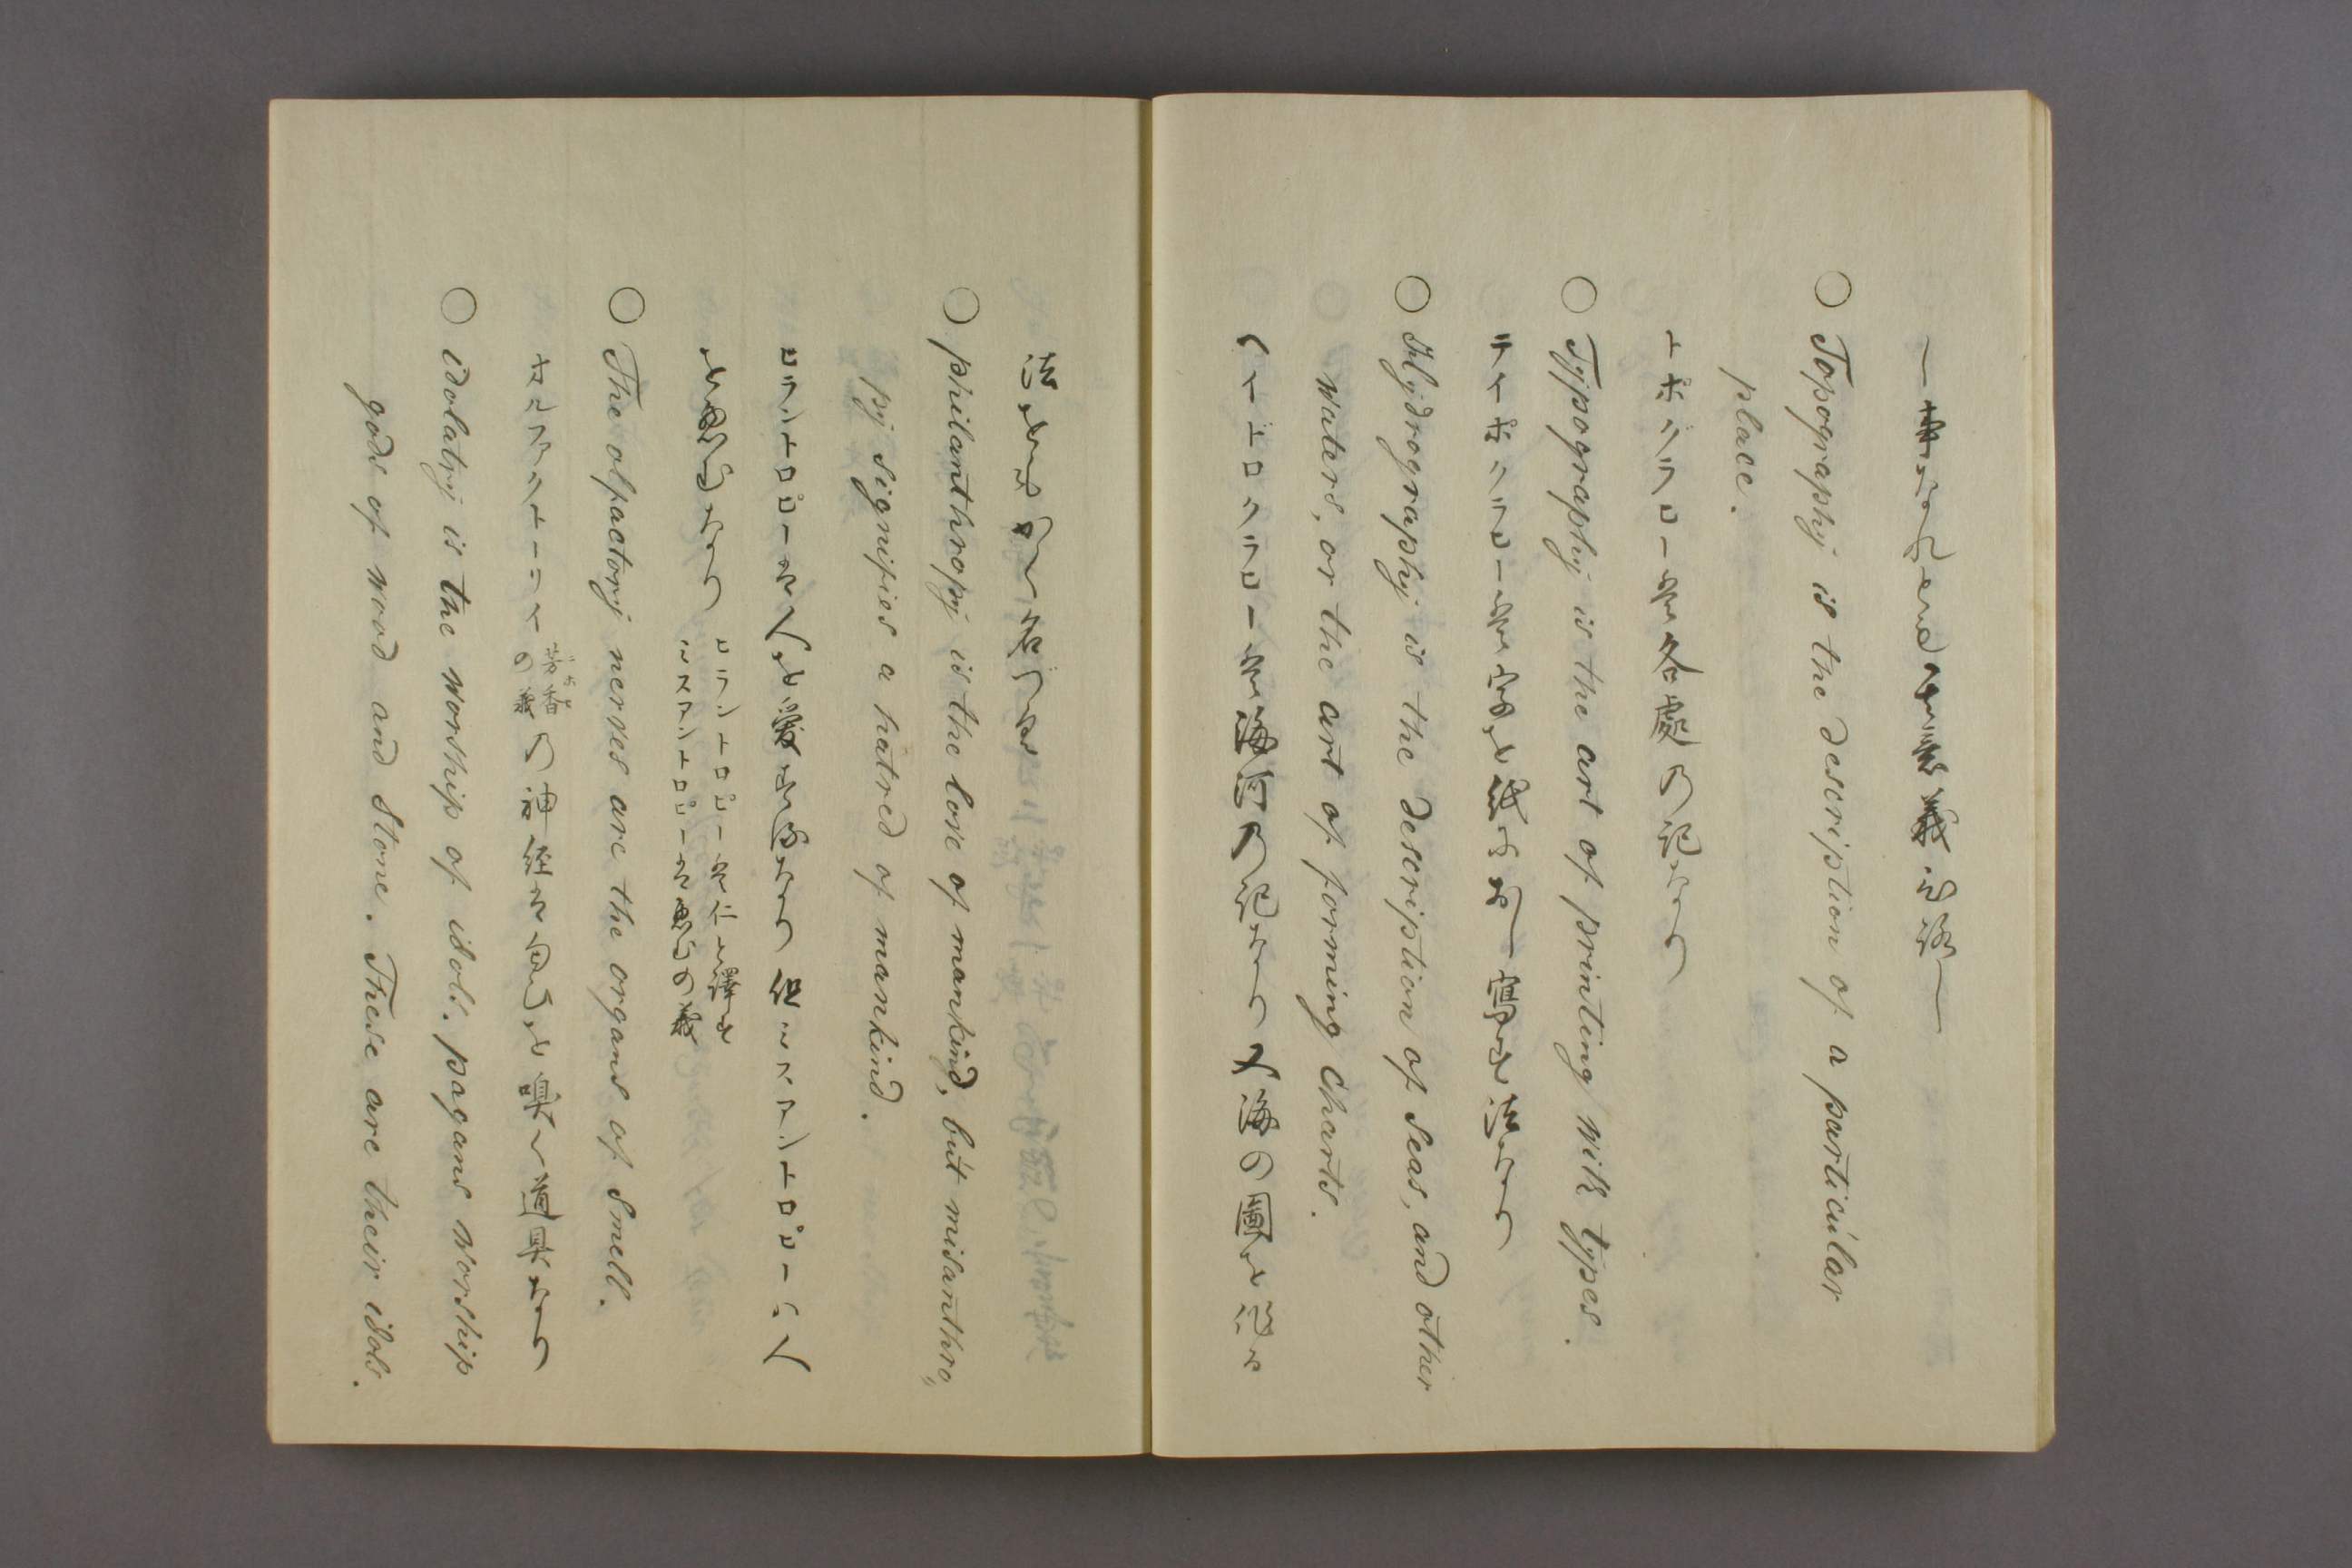 ○ Topography is the description of a particular
place.
トポグラヒー盤各處乃記なり
○ Typography is the art of printing with types.
テイポクラヒー盤字を紙におし寫す法なり
○ Hydrography is the description of seas, and other
waters, or the art of forming charts.
ヘイドログラヒー盤海河乃記なり又海の圖を作る
法をも
○ philanthropy is the love of mankind, but misanthro„
py signifies a hatred of mankind.
ヒラントロピー者人を愛する なり但ミスアントロピーハ人
を悪むなり
ヒラントロピー盤仁と譯す
ミスアントロピー者悪むの義
○ The olfactory nerves are the organs of smell.
ヲルファクトーリイ
芳香
の義
乃神経者匂ひを嗅く道具なり
○ idolatry is the worship of idols. pagans worship
gods of wood and stone. These are their idols.